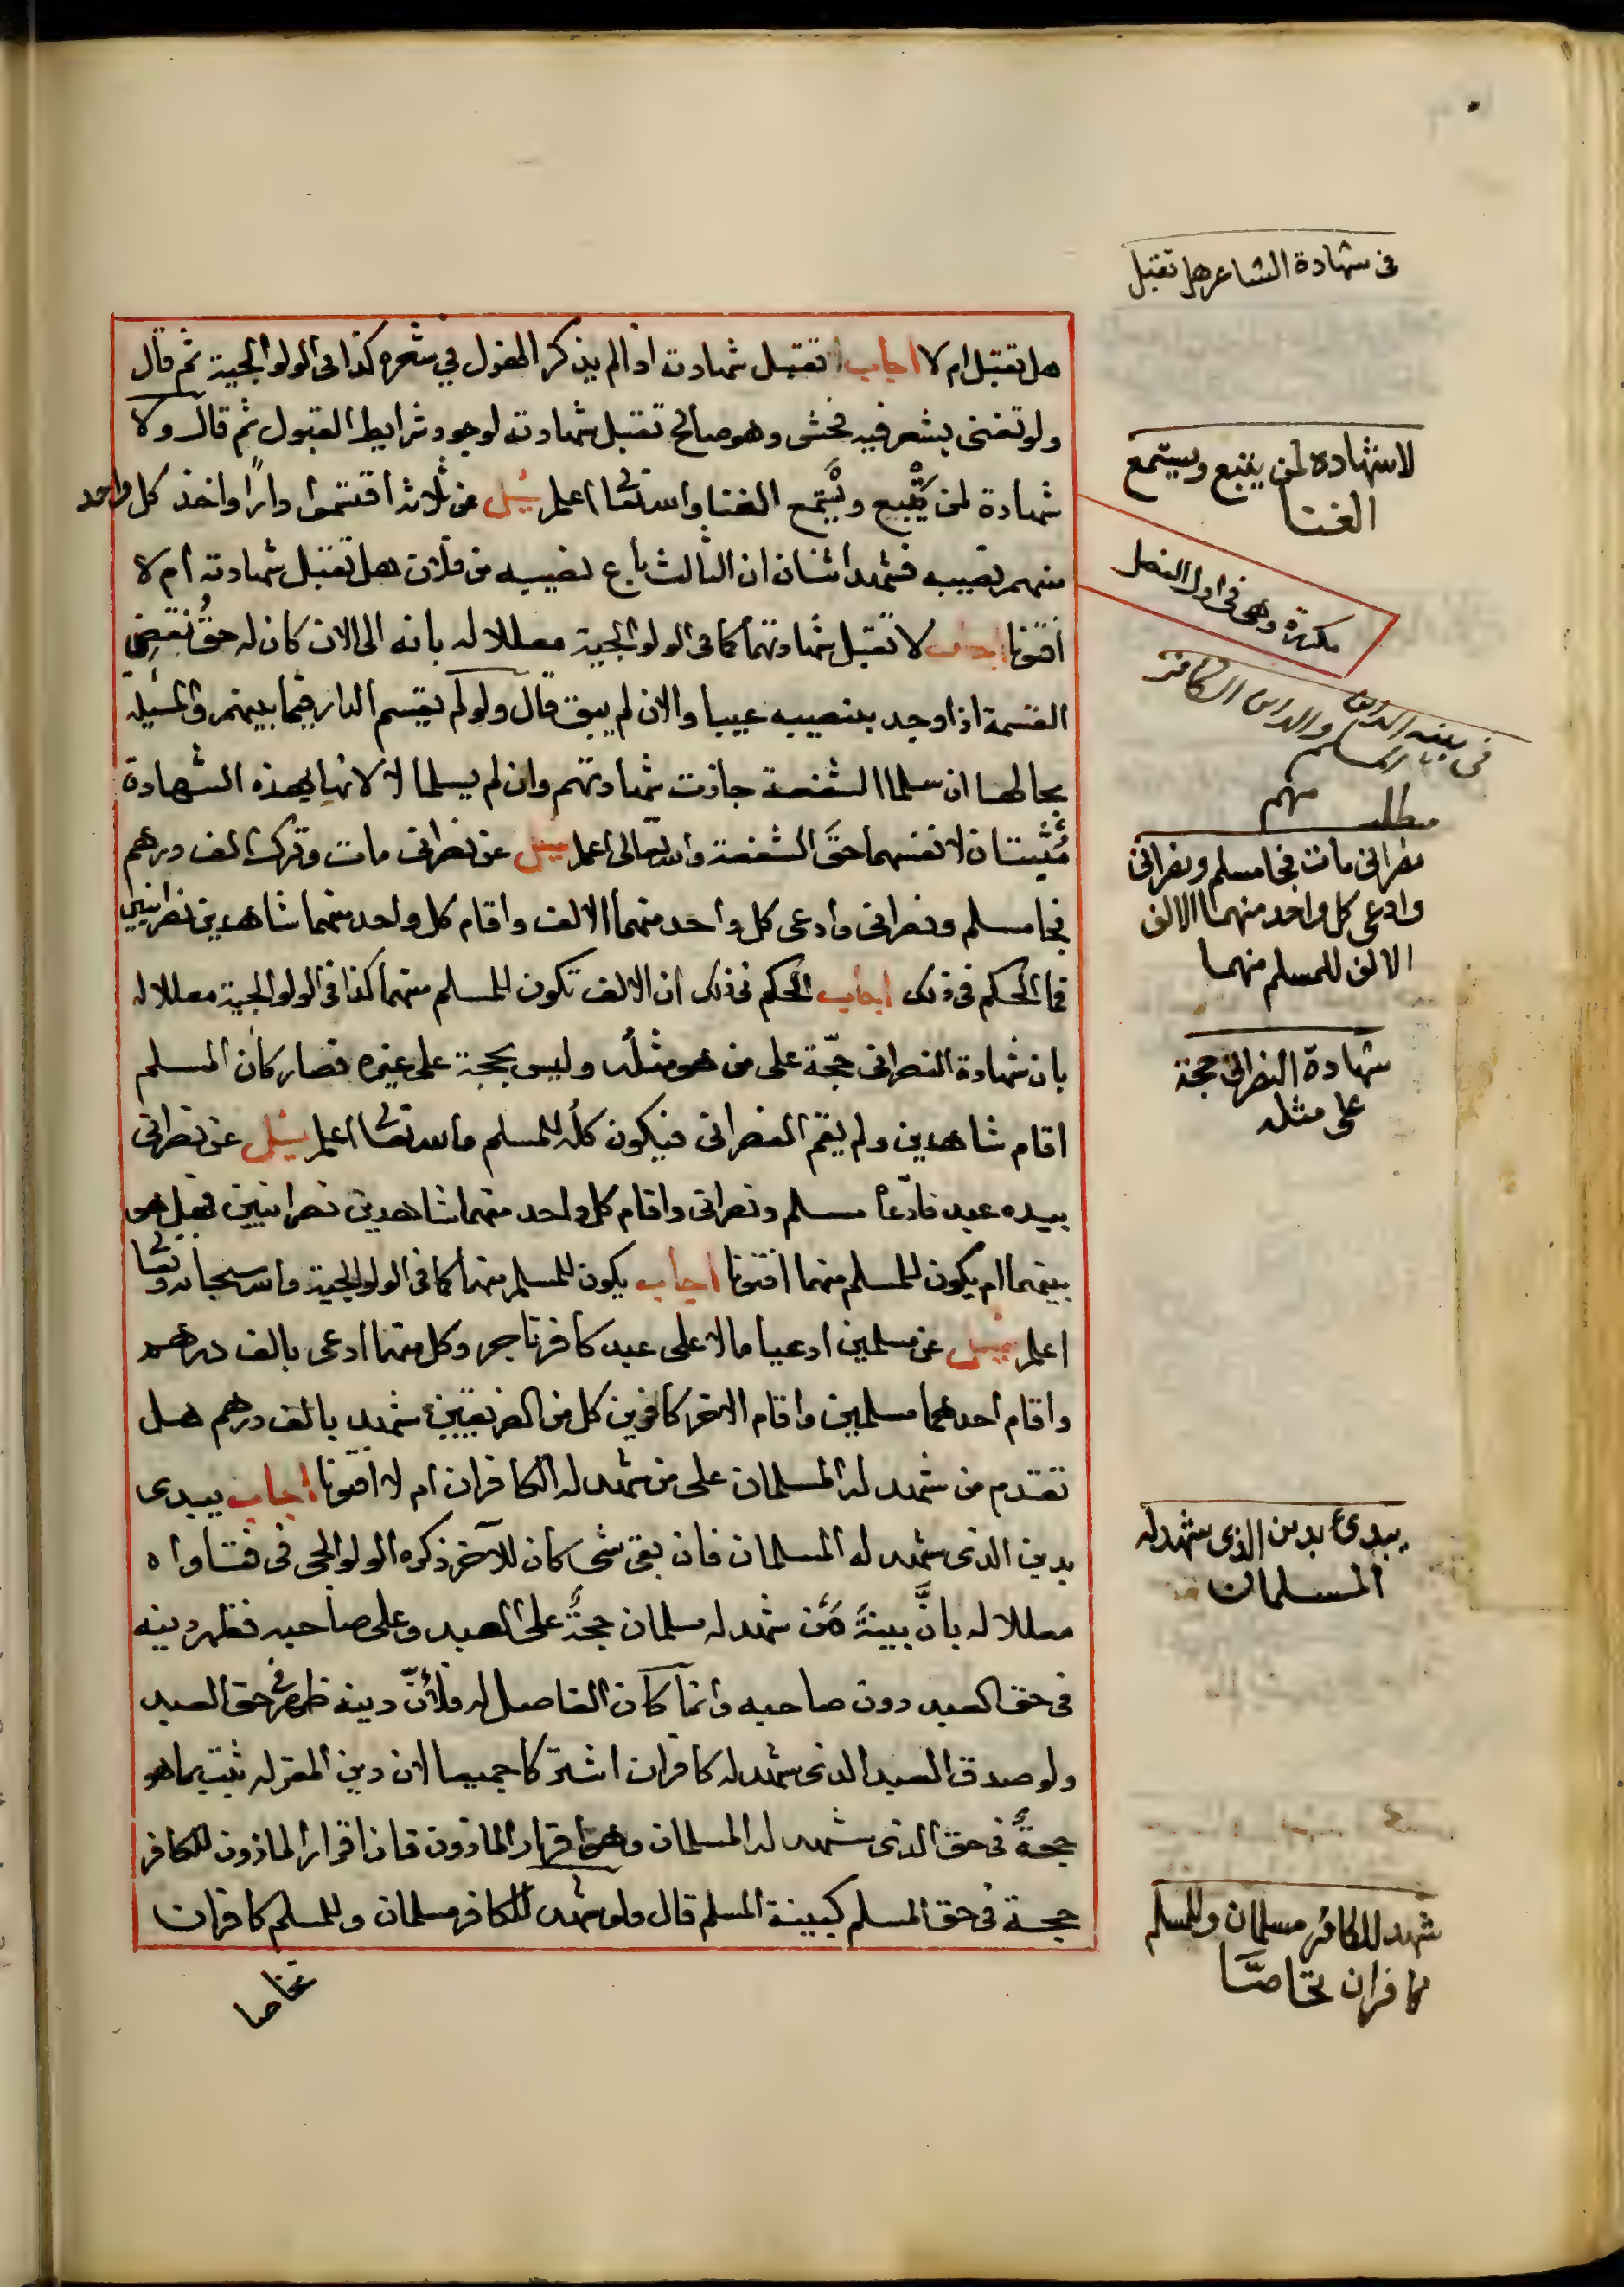 في شهادة الشاعر هل تقبل
هل تقبل ام لا اجاب تقبل شهادته اذا لم يذكر الفول في شعره كذا في الولوالجية ثم قال
ولو تغنى بشعر فيه فحش وهو صالح تقبل شهادته لوجود شرايط القبول ثم قال ولا
شهادة لمن يتبع ويستمع الغنا والله تعا اعلم سئل عن ثلاثة اقتسموا دارًا واخذ كل واحد
منهم نصيبه فشهد اثنان ان الثالث باع نصيبه من فلان هل تقبل شهادته ام لا
افتونا اجاب لا تقبل شهادتهما كما في الولوالجية معللا له بانه الى الان كان له حق نقض
القسمة اذا وجد بنصيبه عيبا والان لم يبق قال ولو لم يقسم الدار فيما بينهم والمسئلة
بحالها ان سلما الشفعة جازت شهادتهم وان لم يسلما لا لانها بهذه الشهادة
يثبتان لانفسهما حق الشفعة والله تعالى اعلم سئل عن نصراني مات وترك الف درهم
فجا مسلم ونصراني وادعى كل واحد منهما الالف واقام كل واحد منهما شاهدين نصرانيين
فما الحكم في ذلك اجاب الحكم في ذلك ان الالف تكون للمسلم منهما كذا في الولوالجية معللا له
بان شهادة النصراني حجّة على من هو مثله وليس بحجة على غيره فصار كأن المسلم
اقام شاهدين ولم يقم النصراني فيكون كله للمسلم والله تعا اعلم سئل عن نصراني
بيده عبد فادّعا مسلم ونصراني واقام كل واحد منهما شاهدين نصرانيين فهل هو
بينهما ام يكون للمسلم منهما افتونا اجاب يكون للمسلم منهما كما في الولوالجية والله سبحانه وتعا
اعلم سئل عن مسلمين ادعيا مالا على عبد كافر تاجر وكل منهما ادعى بالف درهم
واقام احدهما مسلمين واقام الاخر كافرين كل من الفريقين شهد بالف درهم هل
تقدم من شهد له المسلمان على من شهد له الكافران ام لا افتونا اجاب يبدى
بدين الذى شهد له المسلمان فان بقى شى كان للآخر ذكره الولوالجى في فتاواه
معللا له بانَّ بينةَ مَن شهد له مسلمان حجةٌ على العبد وعلى صاحبه فظهر دينه
في حق العبد دون صاحبه وانما كان الفاصل له فلأنّ دينه ظهر في حق العبد
ولو صدق العبد الذى شهد له كافران اشتركا جميعا لان دين المقر له ثبت بما هو
حجةٌ في حق الذى شهد له المسلمان وهو اقرار الماذون فان اقرار الماذون للكافر
حجة في حق المسلم كبينة المسلم قال ولو شهد للكافر مسلمان وللمسلم كافران
تحاصا
لاشهاده لمن يتبع ويستمع
الغنا
مكررة وهى في اول الفصل
في بينه الداين
المسلم والداين الكافر
مطلب مهم
نصرانى مات فجا مسلم ونصرانى
وادعى كل واحد منهما الالف
الالف للمسلم منهما
شهادة النصرانى حجة
على مثله
يبدئ بدين الذى شهد له
المسلمان
شهد للكافر مسلمان وللمسلم
كافران تحاصّا